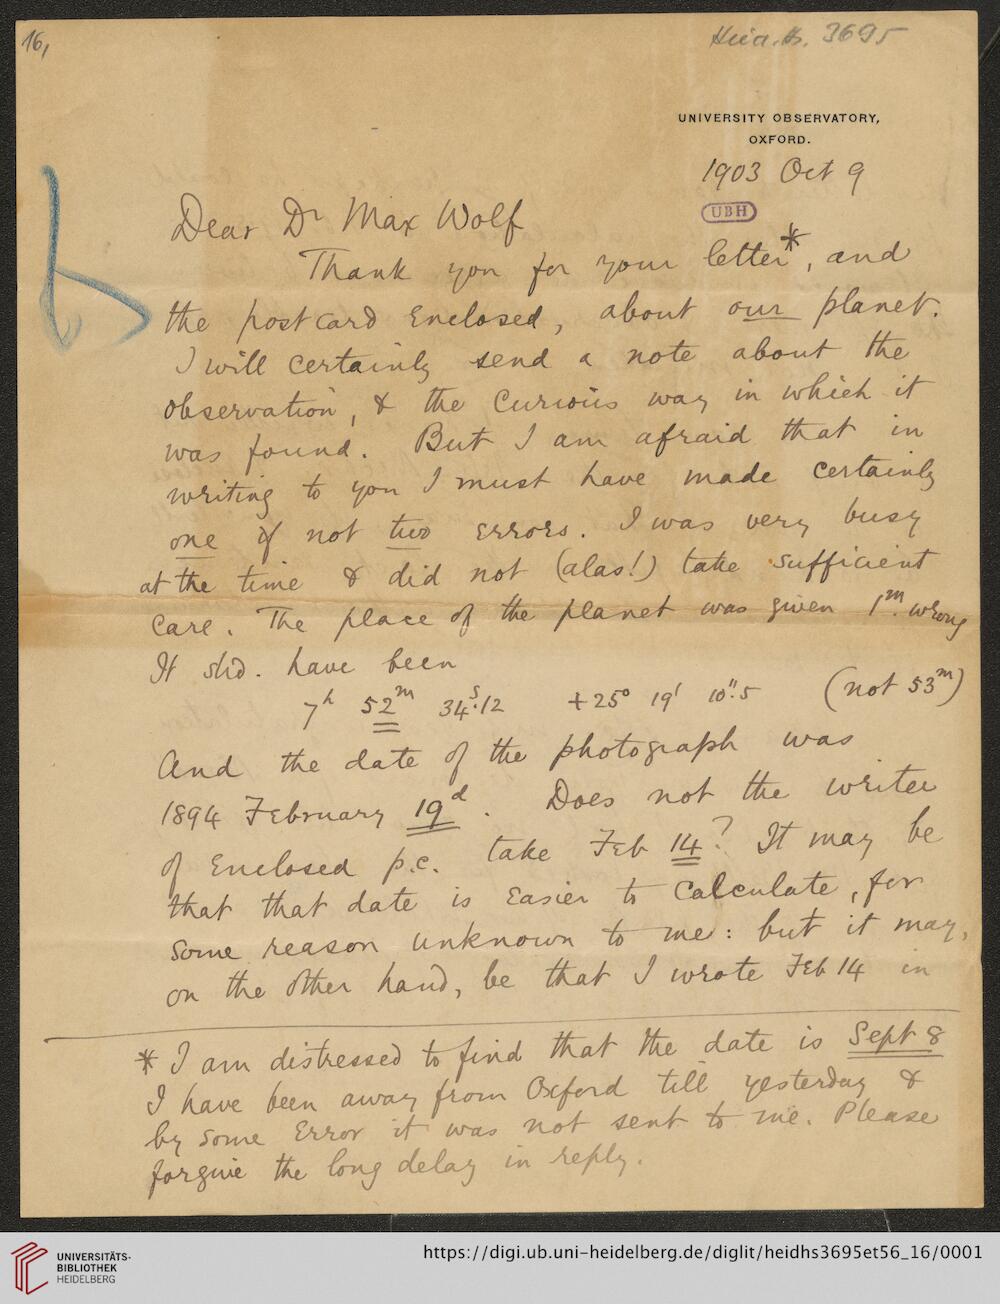 16,
Heid. Hs. 3695
UNIVERSITY OBSERVATORY,
OXFORD.
1903 Oct 9
UBH
Dear Dr Max Wolf
Thank you for your letter*, and
the postcard enclosed, about our planet.
I will certainly send a note about the
observation, & the curious way in which it
was found. But I am afraid that in
writing to you I must have made certainly
one if not two errors. I was very busy
at the time & did not (alas!) take sufficient
care. The place of the planet was given 1m. wrong
It shd. have been
7h 52m 34s.12 +25° 19' 10".5 (not 53m)
And the date of the photograph was
1894 February 19d. Does not the writer
of enclosed p.c. take Feb 14? It may be
that that date is easier to calculate, for
some reason unknown to me: but it may,
on the other hand, be that I wrote Feb 14 in
* I am distressed to find that the date is Sept 8
I have been away from Oxford till yesterday &
by some error it was not sent to me. Please
forgive the long delay in reply.
UNIVERSITÄTS-
BIBLIOTHEK
HEIDELBERG
https://digi.ub.uni-heidelberg.de/diglit/heidhs3695et56_16/0001